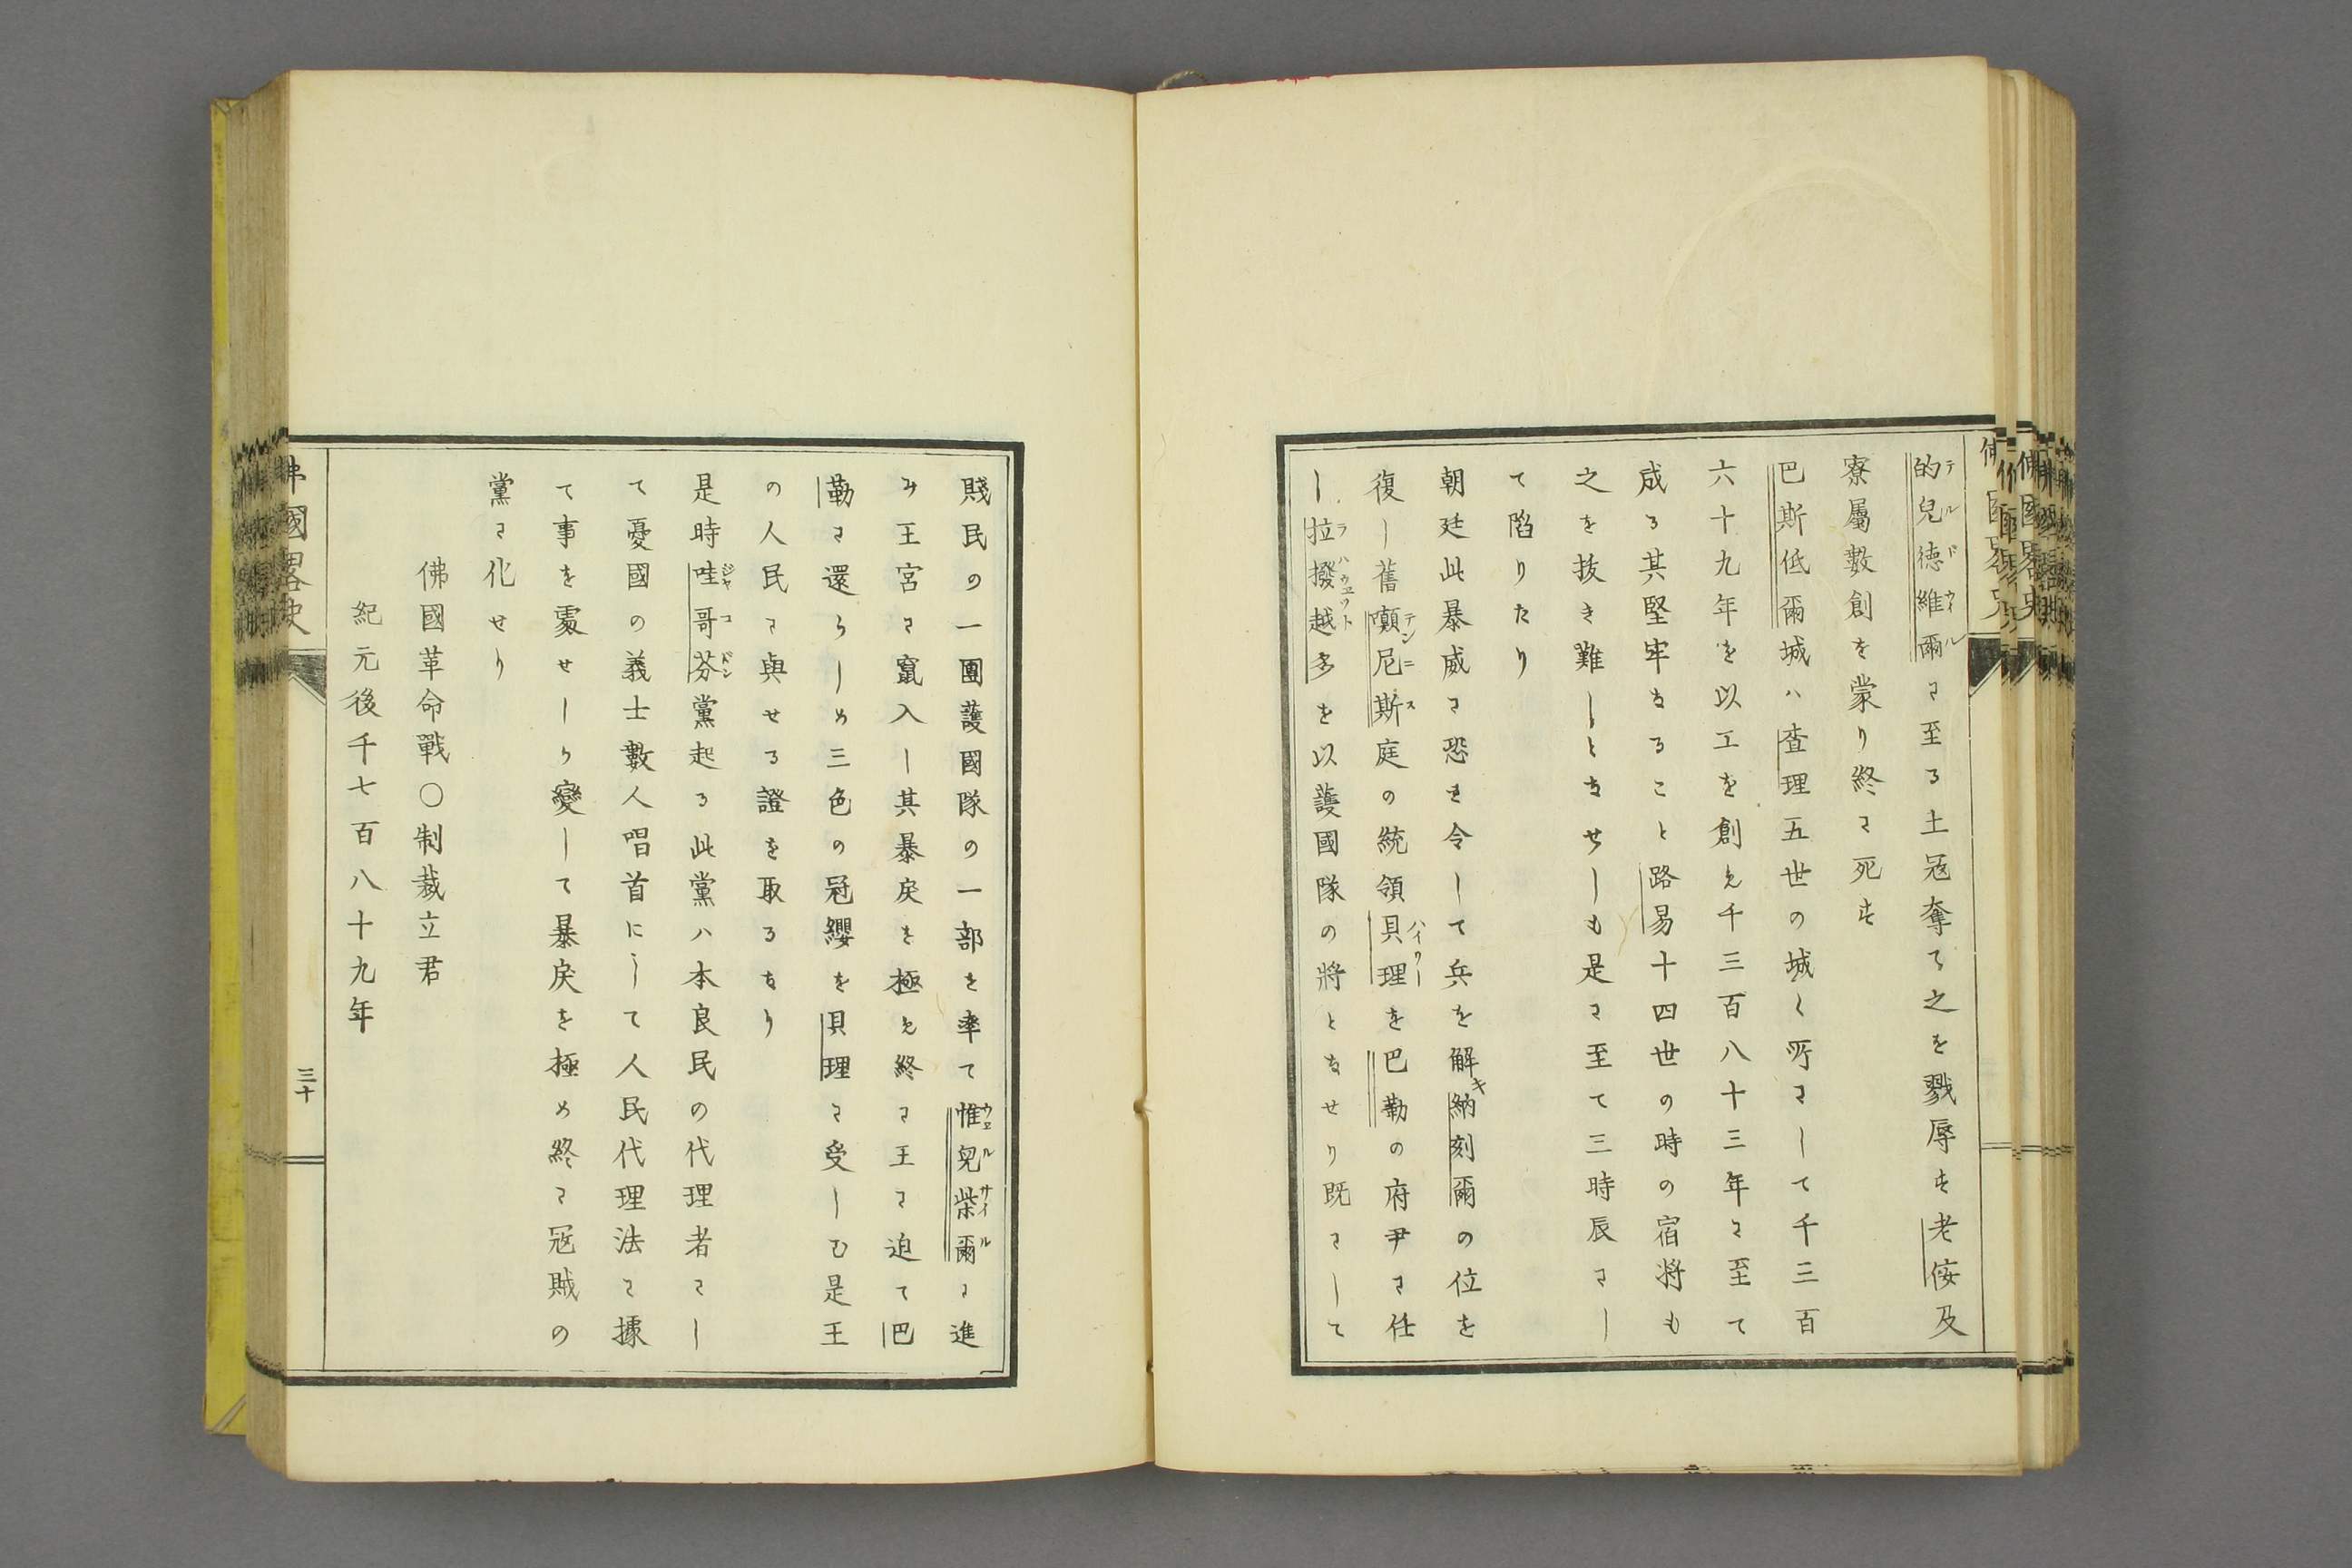 的兒德維爾に至る土冦奪て之を戮辱す老侒及
寮屬數創を蒙り終に死す
巴斯低爾城ハ查理五世の城く所にして千三百
六十九年を以工を創え千三百八十三年に至て
成る其堅牢なること路易十四世の時の宿將も
之を抜き難しとなせしも是に至て三時辰にし
て陷りたり
朝廷此暴威に恐き令して兵を解キ納刻爾の位を
復し舊嚬尼斯庭の統領貝理を巴勒の府尹に任
し拉撥越多を以護國隊の將となせり既にして
賤民の一團護國隊の一部を率て惟兒柴爾に進
み王宮に竄入し其暴戻を極え終に王に迫て巴
勒に還らしめ三色の冠纓を貝理に受しむ是王
の人民に與せる證を取るなり
是時哇哥芬黨起る此黨ハ本良民の代理者にし
て憂國の義士數人唱首にして人民代理法に據
て事を處せしり變して暴戻を極め終に冦賊の
黨に化せり
佛國革命戰○制裁立君
紀元後千七百八十九年
佛國畧史
三十